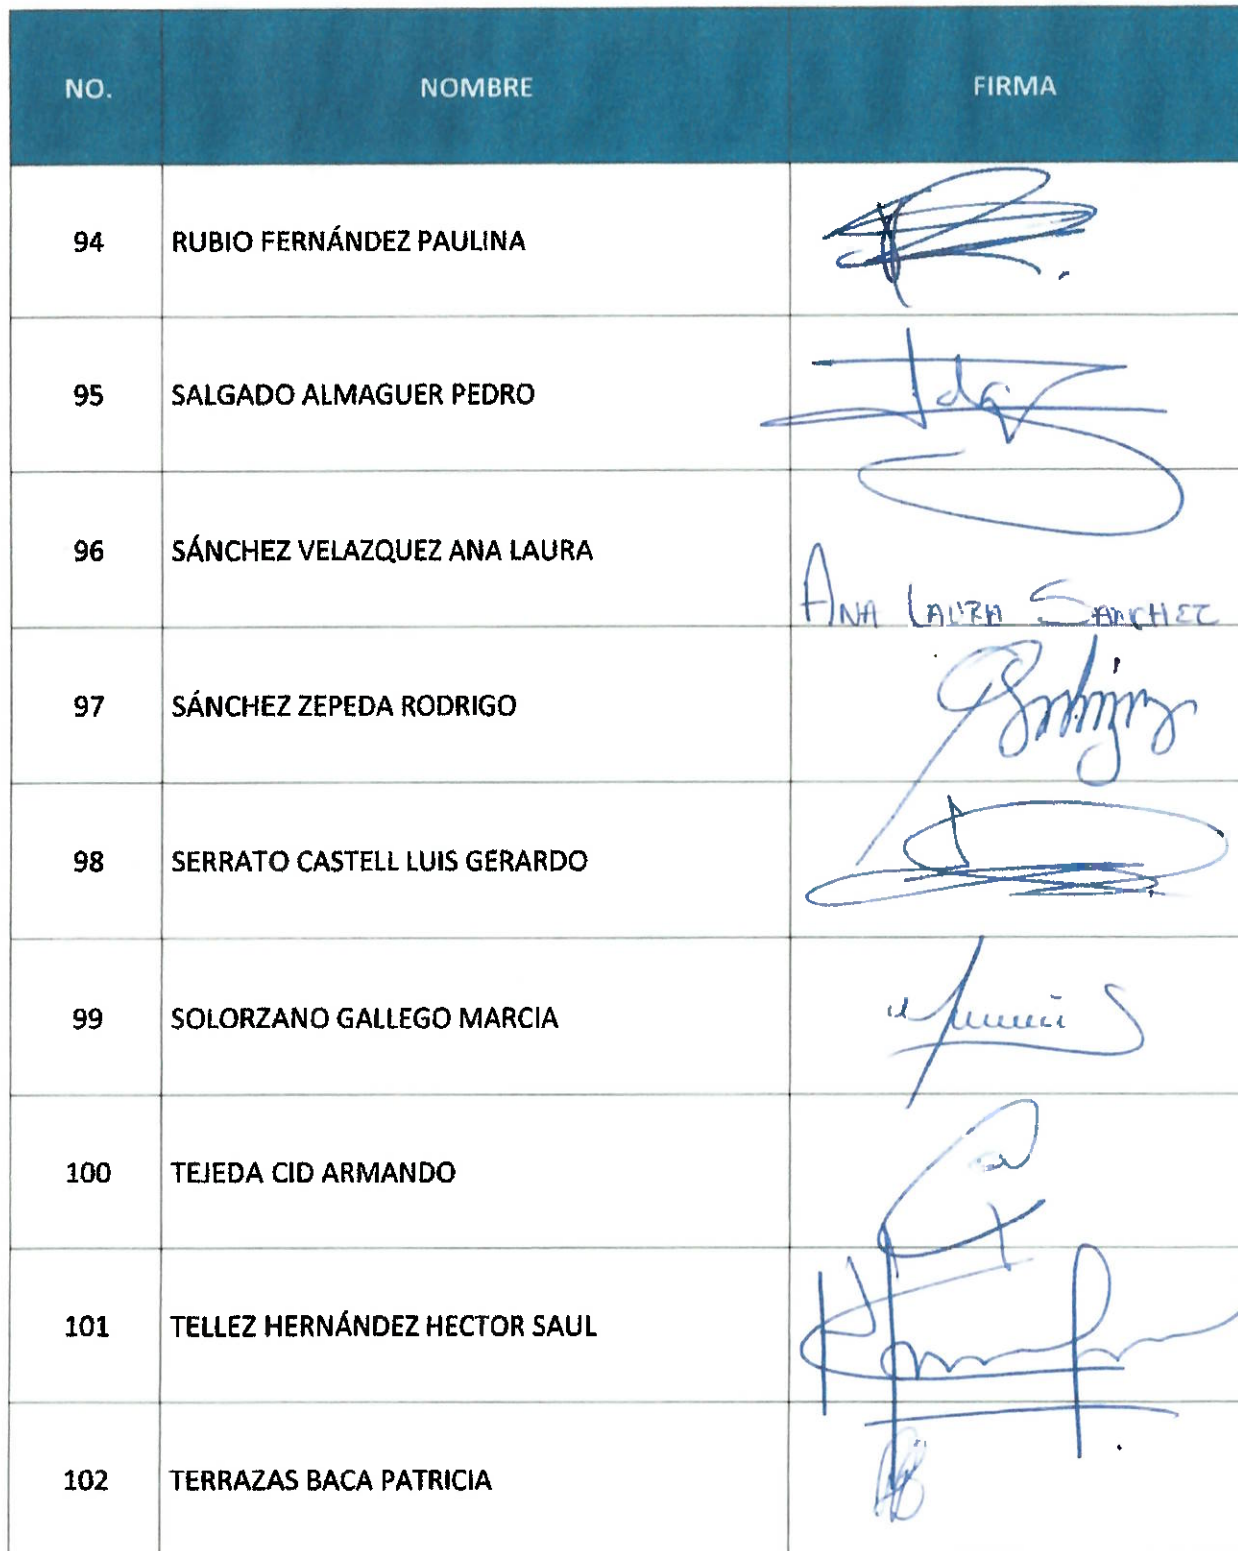 NO. NOMBRE FIRMA
94 RUBIO FERNÁNDEZ PAULINA
95 SALGADO ALMAGUER PEDRO
96 SÁNCHEZ VELAZQUEZ ANA LAURA ANA LAURA SANCHEZ
97 SÁNCHEZ ZEPEDA RODRIGO
98 SERRATO CASTELL LUIS GERARDO
99 SOLORZANO GALLEGO MARCIA
100 TEJEDA CID ARMANDO
101 TELLEZ HERNÁNDEZ HECTOR SAUL
102 TERRAZAS BACA PATRICIA